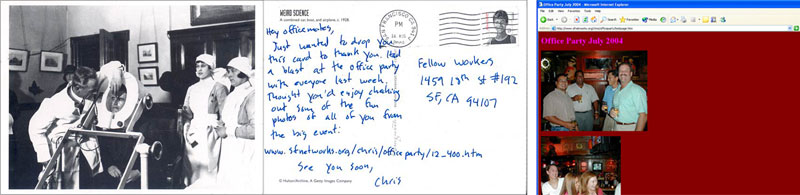 WEIRD SCIENCE
Hey officemates,
Just wanted to drop you
this card to thank you. Had
a blast at the office party
with everyone last week.
Thought you'd enjoy checking
out some of the fun
photos of all of you from
the big event:
www.sfnetworks.org/chris/officeparty/12_400.htm
See you soon,
Chris
© Hulton/Archive, A Getty Images Company
SAN FRANCISCO CA
PM
Fellow Workers
1459 18th St #192
SF, CA 94107
Office Party July 2004 - Microsoft Internet Explorer
File Edit View Favorites Tools Help
Back Search Favorites
Office Party July 2004